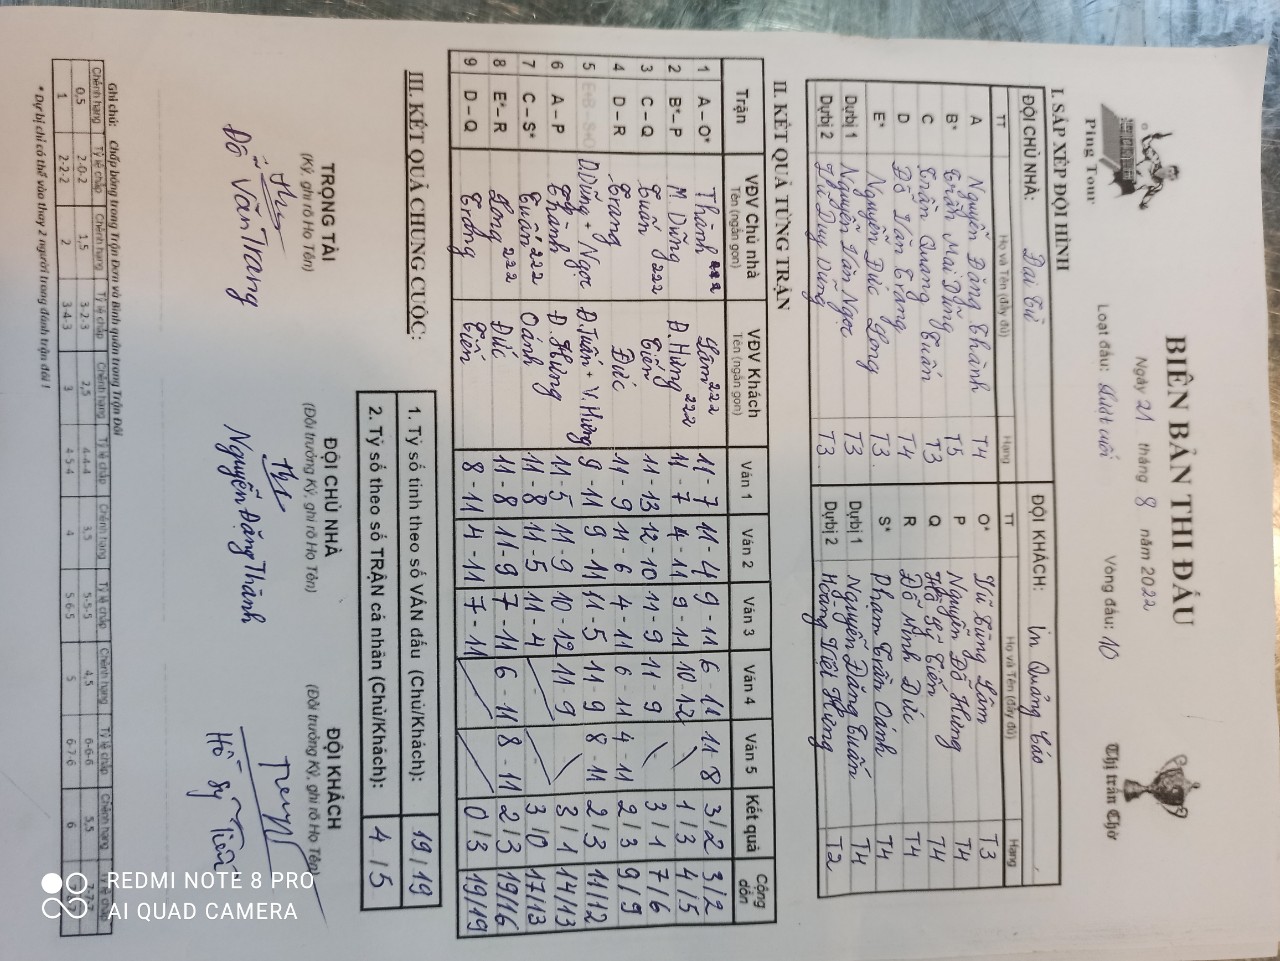 Ping Tour
BIÊN BẢN THI ĐẤU
Ngày 21 tháng 8 năm 2022
Loạt đấu: lượt cuối Vòng đấu: 10
Thị trấn Chờ
I. SẮP XẾP ĐỘI HÌNH
ĐỘI CHỦ NHÀ: Đai Tử ĐỘI KHÁCH: In Quảng Cáo
TT Họ và Tên (đầy đủ) Hạng TT Họ và Tên (đầy đủ) Hạng
A Nguyễn Đăng Thành T4 O* Vũ Tùng Lâm T3
B* Trần Mai Dũng T5 P Nguyễn Đỗ Hưng T4
C Trần Quang Tuấn T3 Q Hồ Sỹ Tiến T4
D Đỗ Văn Trang T4 R Đỗ Minh Đức T4
E* Nguyễn Đức Long T3 S* Phạm Trần Oánh T4
Dự bị 1 Nguyễn Văn Ngọc T3 Dự bị 1 Nguyễn Đăng Tuấn T4
Dự bị 2 Vũ Duy Dũng T3 Dự bị 2 Hoàng Việt Hưng T2
II. KẾT QUẢ TỪNG TRẬN
Trận VĐV Chủ nhà Tên (ngắn gọn) VĐV Khách Tên (ngắn gọn) Ván 1 Ván 2 Ván 3 Ván 4 Ván 5 Kết quả Cộng dồn
1 A – O* Thành Lâm 222 11 - 7 11 - 4 9 - 11 6 - 11 11 - 8 3 / 2 3 / 2
2 B* – P M. Dũng Đ. Hưng 222 11 - 7 4 - 11 9 - 11 10 - 12 1 / 3 4 / 5
3 C – Q Tuấn 222 Tiến 11 - 13 12 - 10 11 - 9 11 - 9 3 / 1 7 / 6
4 D – R Trang Đức 11 - 9 11 - 6 4 - 11 6 - 11 4 - 11 2 / 3 9 / 9
5 D.Dũng + Ngọc Đ.Tuấn + V.Hưng 9 - 11 9 - 11 11 - 5 11 - 9 8 - 11 2 / 3 11 / 12
6 A – P Thành Đ. Hưng 11 - 5 11 - 9 10 - 12 11 - 9 3 / 1 14 / 13
7 C – S* Tuấn 222 Oánh 11 - 8 11 - 5 11 - 4 3 / 0 17 / 13
8 E* – R Long 222 Đức 11 - 8 11 - 9 7 - 11 6 - 11 8 - 11 2 / 3 19 / 16
9 D – Q Trang Tiến 8 - 11 4 - 11 7 - 11 0 / 3 19 / 19
III. KẾT QUẢ CHUNG CUỘC:
1. Tỷ số tính theo số VÁN đấu (Chủ/Khách): 19 / 19
2. Tỷ số theo số TRẬN cá nhân (Chủ/Khách): 4 / 5
TRỌNG TÀI ĐỘI CHỦ NHÀ ĐỘI KHÁCH
(Ký, ghi rõ Họ Tên) (Đội trưởng Ký, ghi rõ Họ Tên) (Đội trưởng Ký, ghi rõ Họ Tên)
Đỗ Văn Trang Nguyễn Đăng Thành Hồ Sỹ Tiến
Ghi chú: Chấp bóng trong Trận Đơn và Bình quân trong Trận Đôi
Chênh hạng Tỷ lệ chấp Chênh hạng Tỷ lệ chấp Chênh hạng Tỷ lệ chấp Chênh hạng Tỷ lệ chấp Chênh hạng Tỷ lệ chấp Chênh hạng
0,5 2-0-2 1,5 3-2-3 2,5 4-4-4 3,5 5-5-5 4,5 6-6-6 5,5
1 2-2-2 2 3-4-3 3 4-5-4 4 5-6-5 5 6-7-6 6
* Dự bị chỉ có thể vào thay 2 người trong đánh trận đôi !
REDMI NOTE 8 PRO
AI QUAD CAMERA